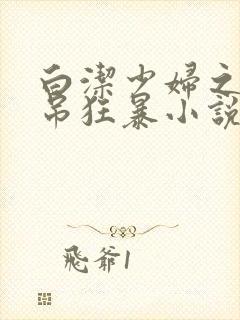 白潔少婦之
吊狂暴小說
飛爺1